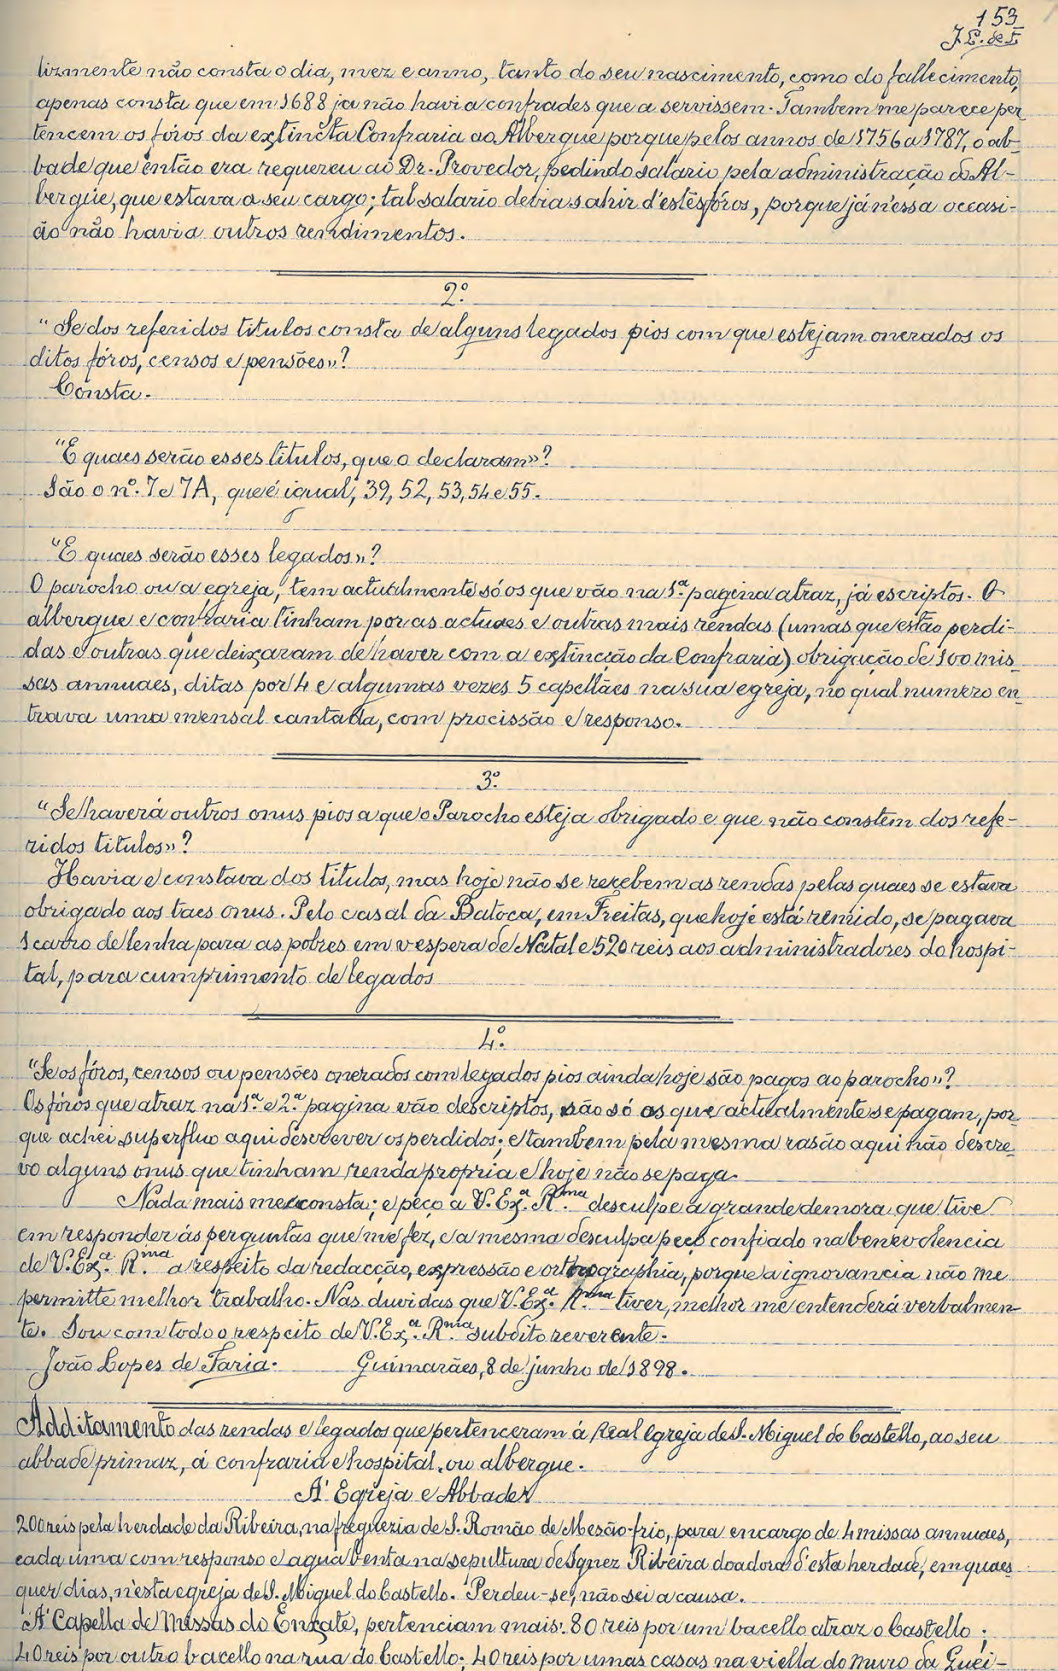 153
J. L. de F.
lizmente não consta o dia, mez e anno, tanto do seu nascimento, como do fallecimento,
apenas consta que em 1688 ja não havia confrades que a servissem. Tambem me parece per-
tencem os fóros da extincta Confraria ao Albergue porque pelos annos de 1756 a 1787, o ab-
bade que então era requereu ao Dr. Provedor, pedindo salario pela administração do Al-
bergue, que estava a seu cargo; tal salario debia sahir d'estes fóros, porque já n'essa occasi-
ão não havia outros rendimentos.
2.º
"Se dos referidos titulos consta de alguns legados pios com que estejam onerados os
ditos fóros, censos e pensões»?
Consta.
"E quaes serão esses titulos, que o declaram»?
São o nº. 7 e 7A, que é igual, 39, 52, 53, 54 e 55.
"E quaes serão esses legados»?
O parocho ou a egreja, tem actualmente só os que vão na 1.ª pagina atraz, já escriptos. O
albergue e confraria tinham por as actuaes e outras mais rendas (umas que estão perdi-
das e outras que deixaram de haver com a extincção da Confraria) obrigação de 100 mis-
sas annuaes, ditas por 4 e algumas vezes 5 capellães na sua egreja, no qual numero en-
trava uma mensal cantada, com procissão e responso.
3.º
"Se haverá outros onus pios a que o Parocho esteja obrigado e que não constem dos refe-
ridos titulos»?
Havia e constava dos titulos, mas hoje não se recebem as rendas pelas quaes se estava
obrigado aos taes onus. Pelo casal da Batoca, em Freitas, que hoje está remido, se pagava
1 carro de lenha para as pobres em vespera de Natal e 520 reis aos administradores do hospi-
tal, para cumprimento de legados
4.º
"Se os fóros, censos ou pensões onerados com legados pios ainda hoje são pagos ao parocho»?
Os fóros que atraz na 1.ª e 2.ª pagina vão descriptos, são só os que actualmente se pagam, por-
que achei superfluo aqui descrever os perdidos; e tambem pela mesma rasão aqui não descre-
vo alguns onus que tinham renda propria e hoje não se paga.
Nada mais me consta; e peço a V. Ex.ª R.ma desculpe a grande demora que tive
em responder ás perguntas que me fez, e a mesma desculpa peço confiado na benevolencia
de V. Ex.ª R.ma a respeito da redacção, expressão e orthographia, porque a ignorancia não me
permitte melhor trabalho. Nas duvidas que V. Ex.ª R.ma tiver, melhor me entenderá verbalmen-
te. Sou com todo o respeito de V. Ex.ª R.ma subdito reverente.
João Lopes de Faria. Guimarães, 8 de junho de 1898.
Additamento das rendas e legados que pertenceram á Real Egreja de S. Miguel do Castello, ao seu
abbade primaz, á confraria e hospital, ou albergue.
A' Egreja e Abbade
200 reis pela herdade da Ribeira, na freguezia de S. Romão de Mesão-frio, para encargo de 4 missas annuaes,
cada uma com responso e agua benta na sepultura de Ignez Ribeira doadora d'esta herdade, em quaes-
quer dias, n'esta egreja de S. Miguel do Castello. Perdeu-se, não sei a causa.
A' Capella de Missas do Enxate, pertenciam mais: 80 reis por um bacello atraz o Castello;
40 reis por outro bacello na rua do Castello; 40 reis por umas casas na viella do muro da Guei-